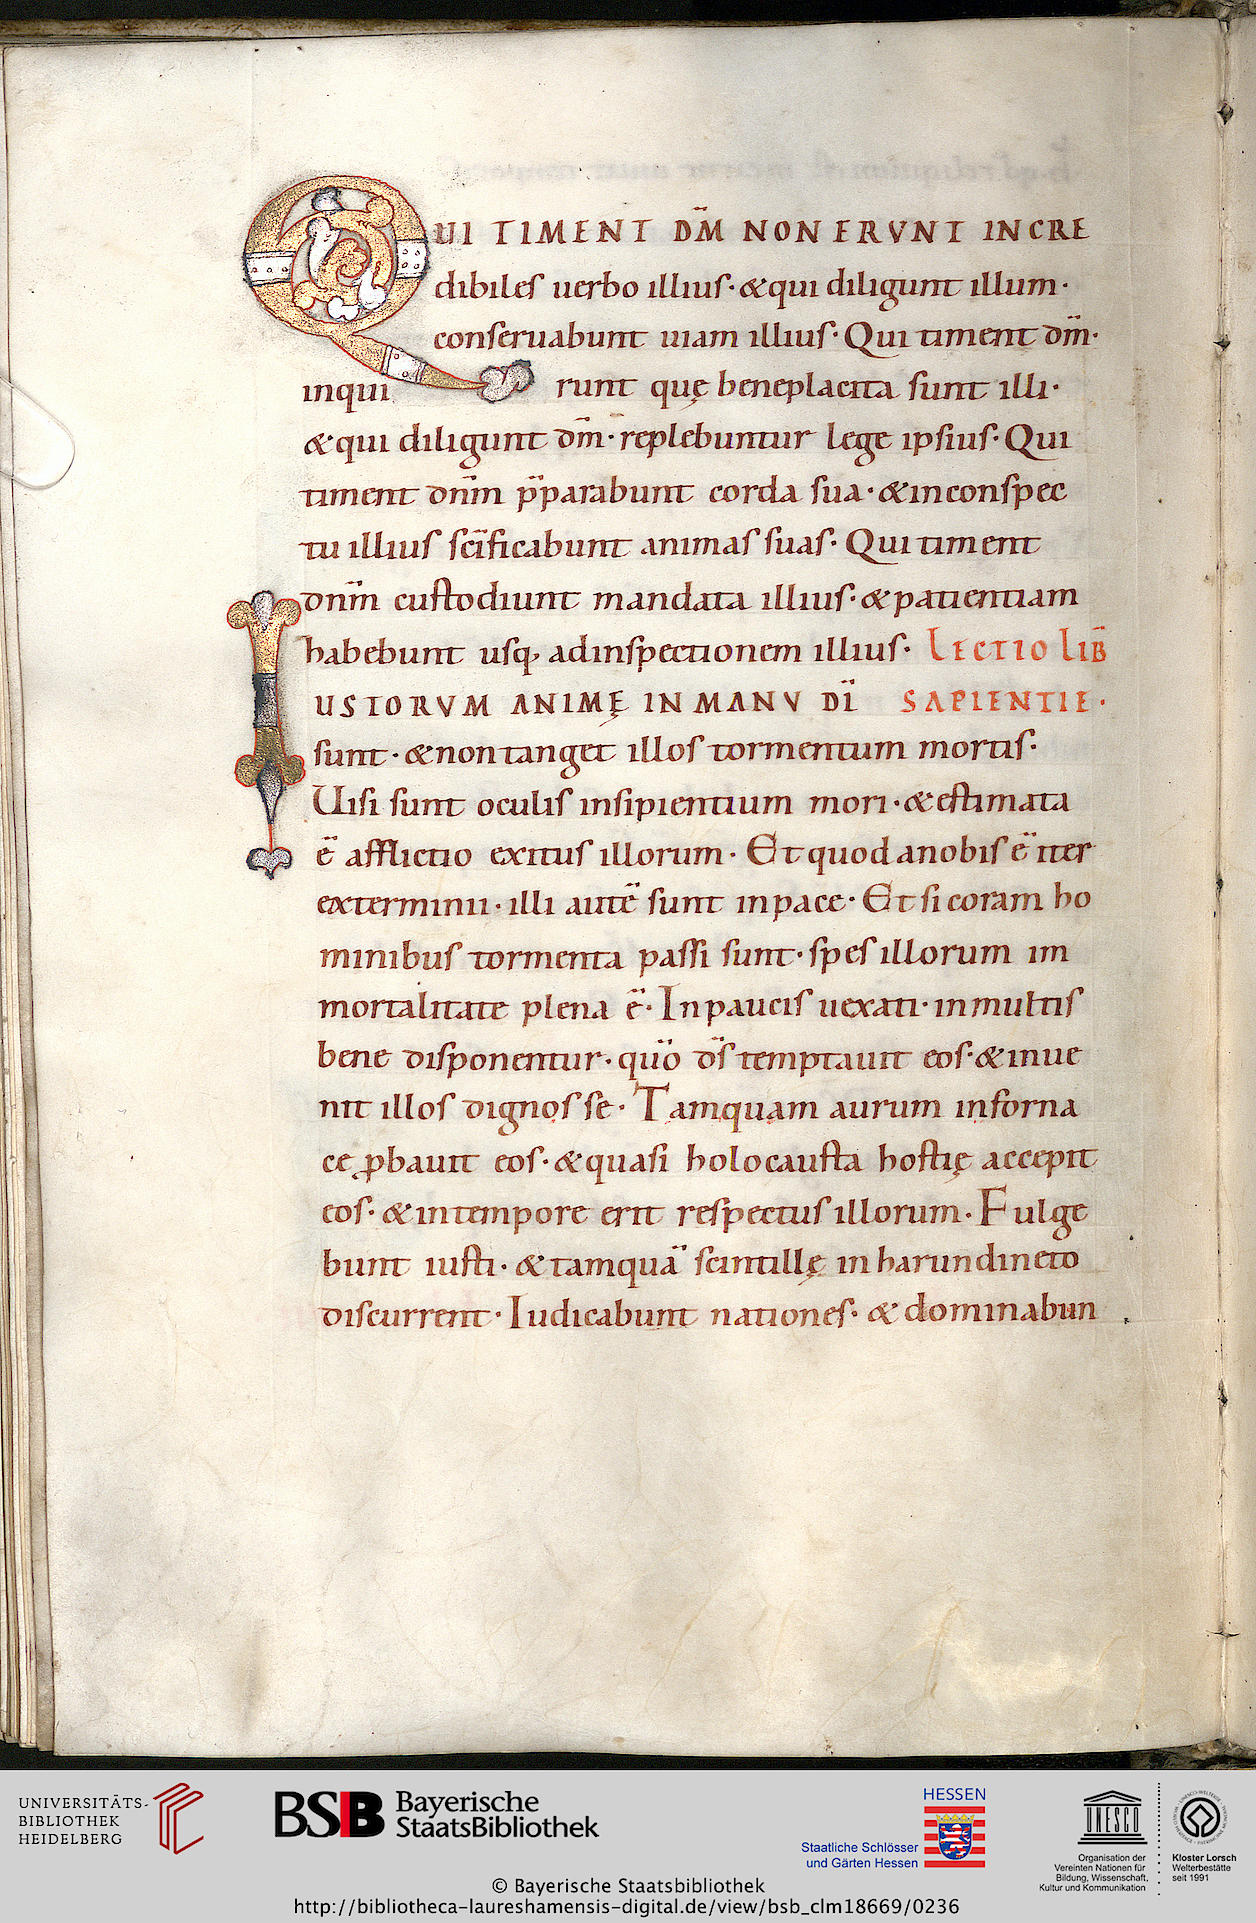 QUI TIMENT DM̄ NON ERVNT INCRE
dibiles uerbo illius· &qui diligunt illum·
conseruabunt uiam illius· Qui timent dm̄·
inqui runt quę beneplacita sunt illi·
&qui diligunt dm̄· replebuntur lege ipsius· Qui
timent dnm̄ p̄parabunt corda sua· &inconspec
tu illius scīficabunt animas suas· Qui timent
dnm̄ custodiunt mandata illius· &patientiam
habebunt usq, adinspectionem illius· LECTIO LIB̄
IUSTORVM ANIMĘ IN MANV DĪ SAPIENTIE·
sunt· &non tanget illos tormentum mortis·
Uisi sunt oculis insipientium mori· &estimata
ē afflictio exitus illorum· Et quod anobis ē iter
exterminii· illi autē sunt inpace· Et si coram ho
minibus tormenta passi sunt· spes illorum im
mortalitate plena ē· In paucis uexati· in multis
bene disponentur· quō ds̄ temptauit eos· &inue
nit illos dignos se· Tamquam aurum inforna
ce ꝓbauit eos· &quasi holocausta hostię accepit
eos· &intempore erit respectus illorum· Fulge
bunt iusti· &tamquā scintillę in harundineto
discurrent· Iudicabunt nationes· & dominabun
UNIVERSITÄTS-
BIBLIOTHEK
HEIDELBERG
BSB Bayerische
StaatsBibliothek
HESSEN
Staatliche Schlösser
und Gärten Hessen
UNESCO
Organisation der
Vereinten Nationen für
Bildung, Wissenschaft,
Kultur und Kommunikation
Kloster Lorsch
Welterbestätte
seit 1991
© Bayerische Staatsbibliothek
http://bibliotheca-laureshamensis-digital.de/view/bsb_clm18669/0236